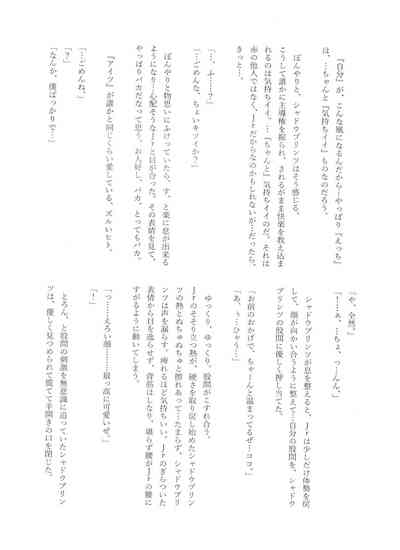 『自分』が、こんな風になるんだから…やっぱり『えっち』
は、…ちゃんと『気持ちイイ』ものなのだろう。
ぼんやりと、シャドウプリンツはそう感じる。
こうして誰かに主導権を握られ、されるがまま快楽を教え込ま
れるのは気持ちイイ。…『ちゃんと』気持ちイイのだ。それは
赤の他人ではなく、Jrだからなのかもしれないが…だったら、
きっと…。
「…、ふ……ウ」
「…ごめんな、ちょいキツイか?」
ぼんやりと物思いにふけっていたら、す、と楽に息が出来る
ようになり…心配そうなJrと目が合った。その表情を見て、
やっぱりバカなだなって思う。お人好し、バカ、とってもバカ。
『アイツ』が誰かと同じくらい愛している、ズルいヒト。
「…ごめんね、」
「?」
「なんか、僕ばっかりで…」
「や、全然。」
「!…ぁ、…ちょ、っ…んん。」
シャドウプリンツが息を整えると、Jrは少しだけ体勢を戻
して、顔が向かい合うように整えて…自分の股間を、シャドウ
プリンツの股間に優しく押し当てた。
「お前のおかげで、ちゃーんと温まってるぜ…ココ。」
「あ、ぅ…ひゃぅ…」
ゆっくり、ゆっくり、股間がこすれ合う。
Jrのそそり立つ熱が、硬さを取り戻し始めたシャドウプリ
ンツの熱とぬちゅぬちゅと擦れあって…たまらず、シャドウプリ
ンツは声を漏らす。痺れるほど気持ちいい。Jrのぎらついた
表情から目を逸らせず、背筋はしなり、堪らず腰がJrの腰に
すがるように動いてしまう。
「っ……えろい顔……最っ高に可愛いぜ。」
「!」
とろん、と股間の刺激を無意識に追っていたシャドウプリン
ツは、優しく見つめられて慌てて半開きの口を閉じた。